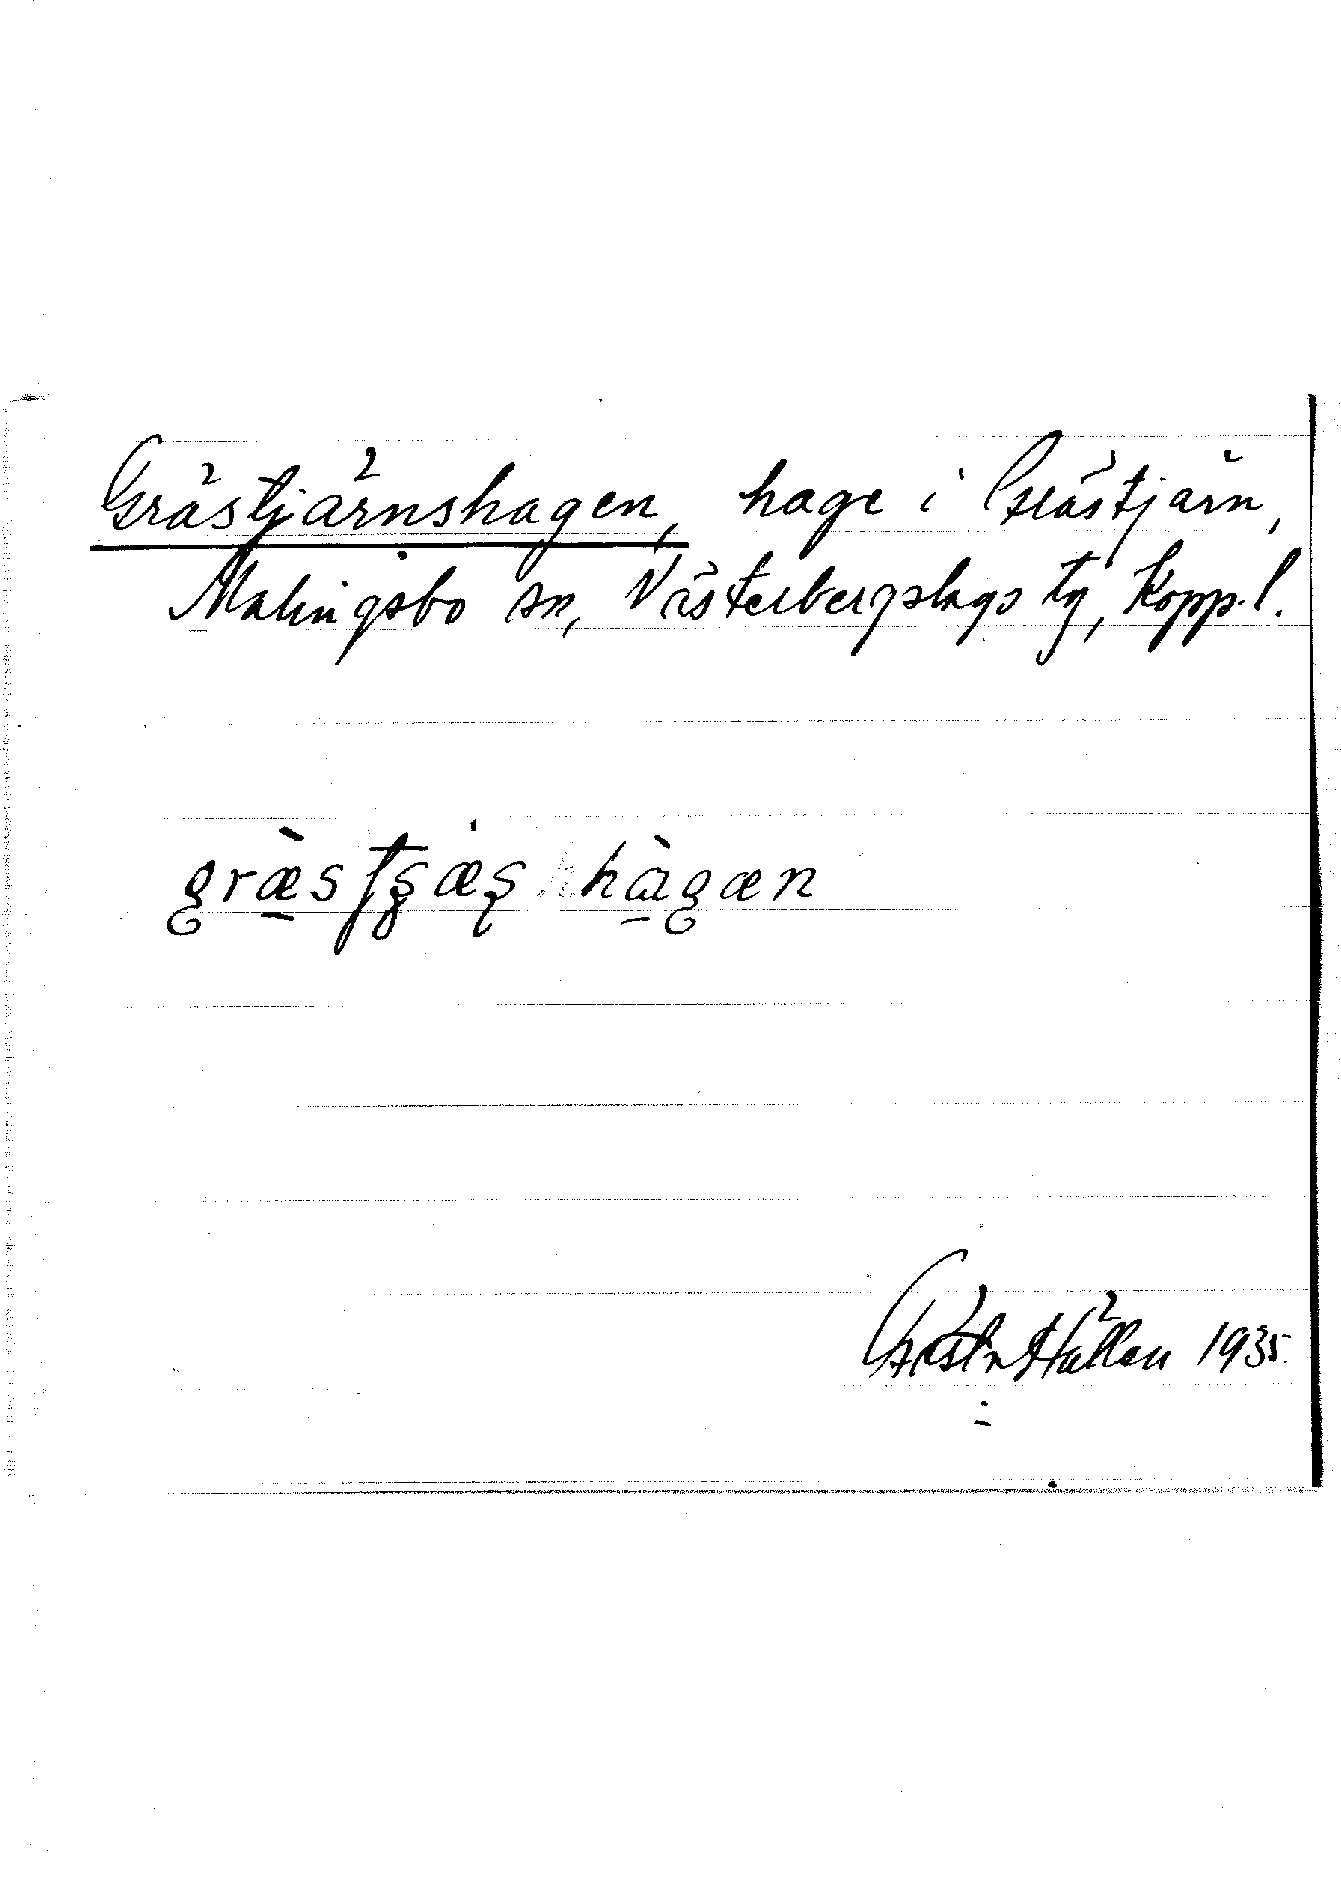 Grästjärnshagen, hage i Grästjärn,
Malingsbo sn, Västerbergslags tg, Kopp. l.
hàgæn
Hällen 1935.